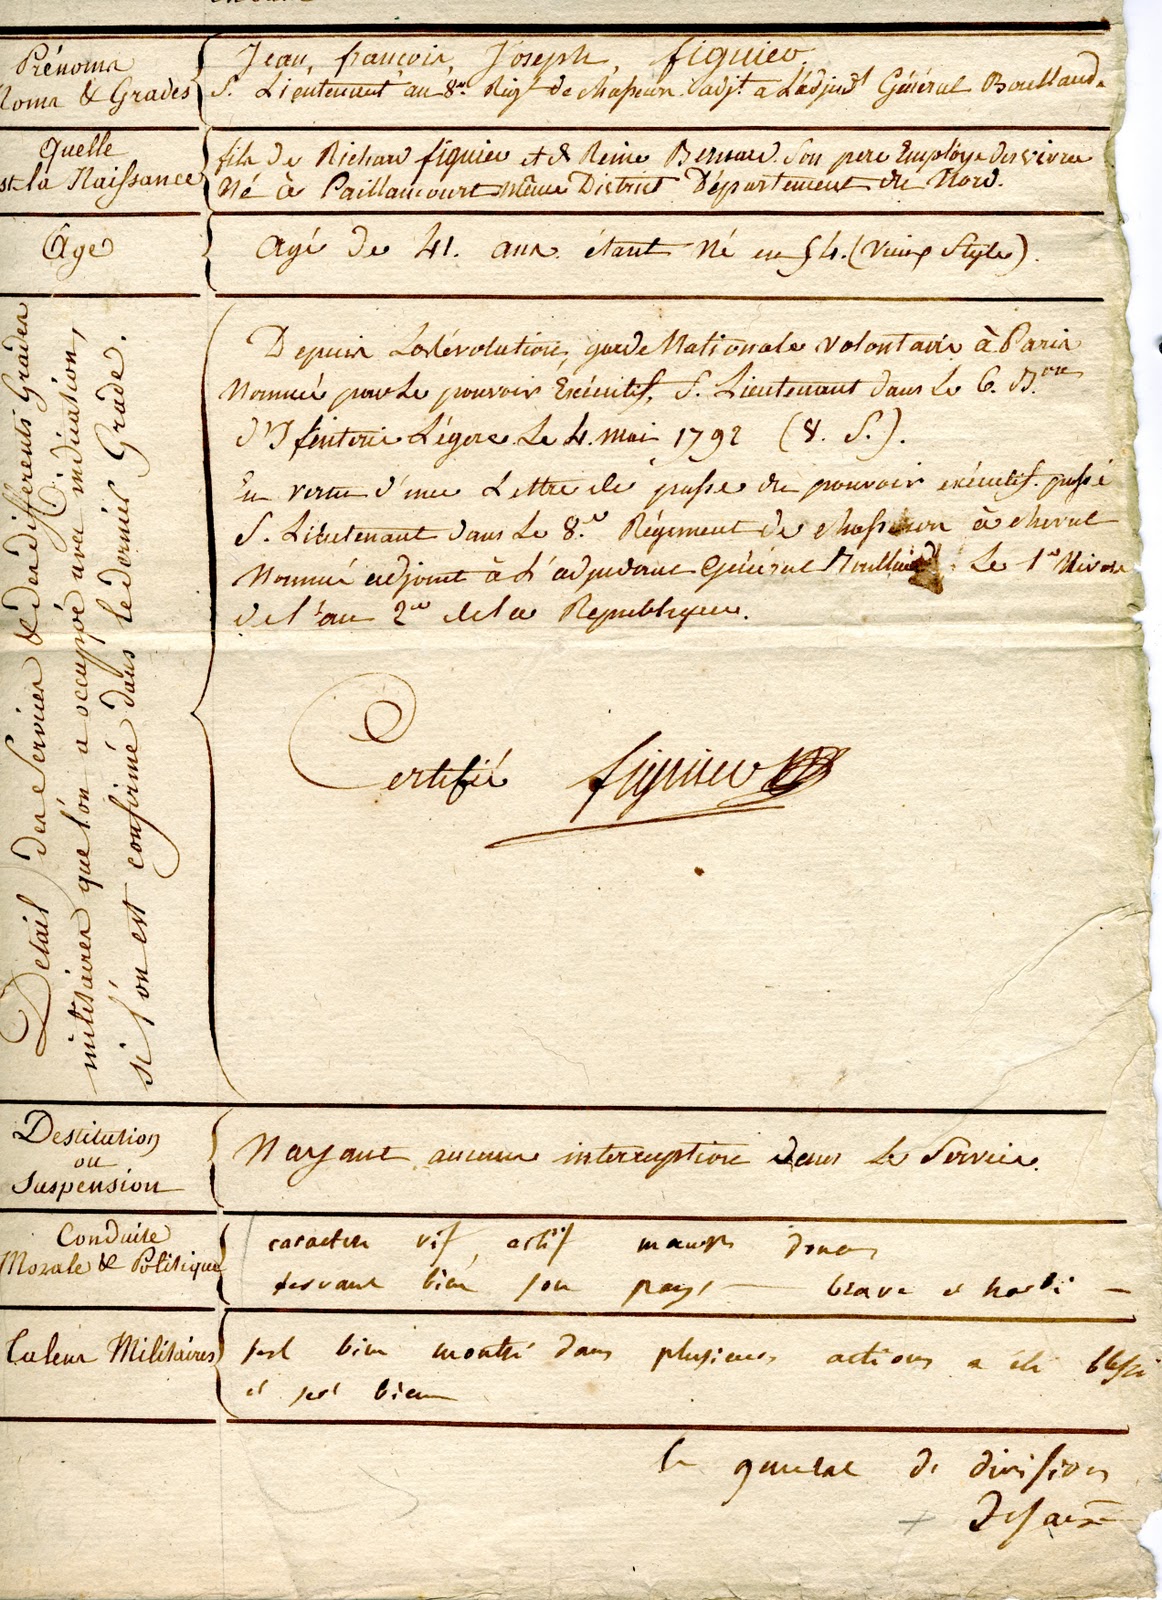 Prénoms
Noms & Grades
Jean, françois, Joseph, figuier.
S. Lieutenent au 8.e Reg.t de chasseurs adj.t a L'adjud.t Général Boullaud.
Quelle
est la Naissance
fils de Richard figuier et de Reine Bernard. Son pere Employé des vivres
Né à Paillancourt même District Département du Nord.
Âge
agé de 41. ans. étant Né en 54. (vieux Style).
Détail des Services & des différents Grades
militaires que l'on a occuppé avec indication,
si l'on est confirmé dans le dernier Grade.
Depuis La Révolution, garde Nationale volontaire à Paris
Nommé par Le pouvoir Exécutif, S. Lieutenant dans Le 6. B.on
d'Infenterie Légere Le 4. mai 1792 (V. S.).
En vertu d'une Lettre de passe du pouvoir exécutif. passé
S. Lieutenant dans Le 8.e Régiment de chasseur à cheval
Nommé adjoint à L'adjudant Général Boullaud. Le 1.er Nivose
de l'an 2.e de La Republique.
Certifié figuier
Destitution
ou
Suspension
N'ayant aucune interruption dans Le Service.
Conduite
Morale & Politique
caractere vif, actif mœurs douces
servant bien son pays — brave et hardi —
Valeur Militaires
s'est bien montré dans plusieurs actions a été blessé
et sert bien
le general de division
Desaix